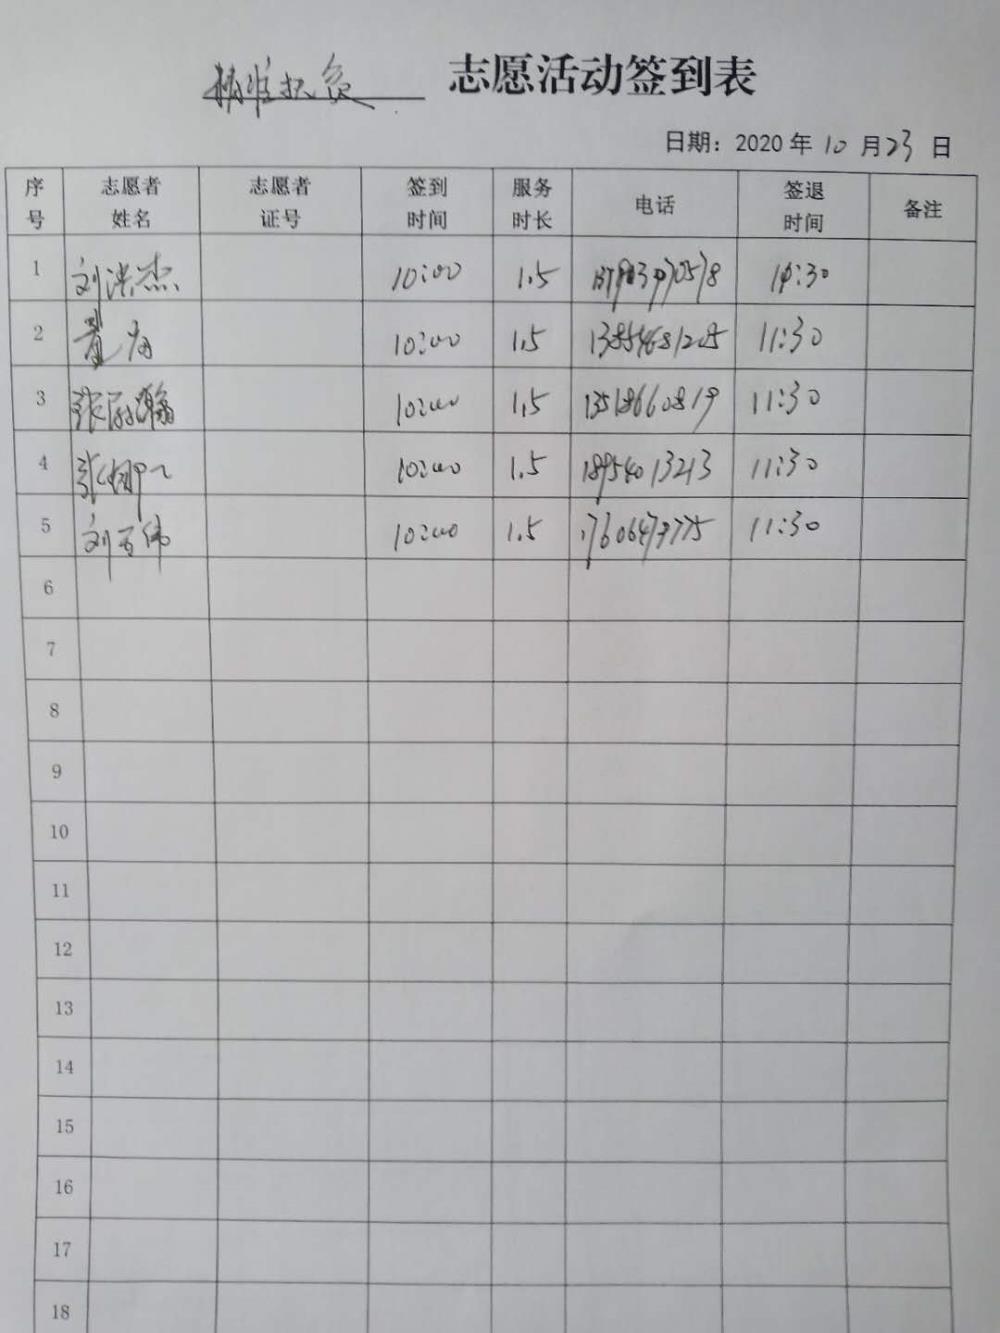 精准扶贫 志愿活动签到表
日期：2020 年 10 月 23 日
序号 志愿者姓名 志愿者证号 签到时间 服务时长 电话 签退时间 备注
1 刘洪杰 10:00 1.5
2 10:00 1.5 13854681205 11:30
3 10:00 1.5 13518660819 11:30
4 张娜 10:00 1.5 18954013213 11:30
5 10:00 1.5 11:30
6
7
8
9
10
11
12
13
14
15
16
17
18